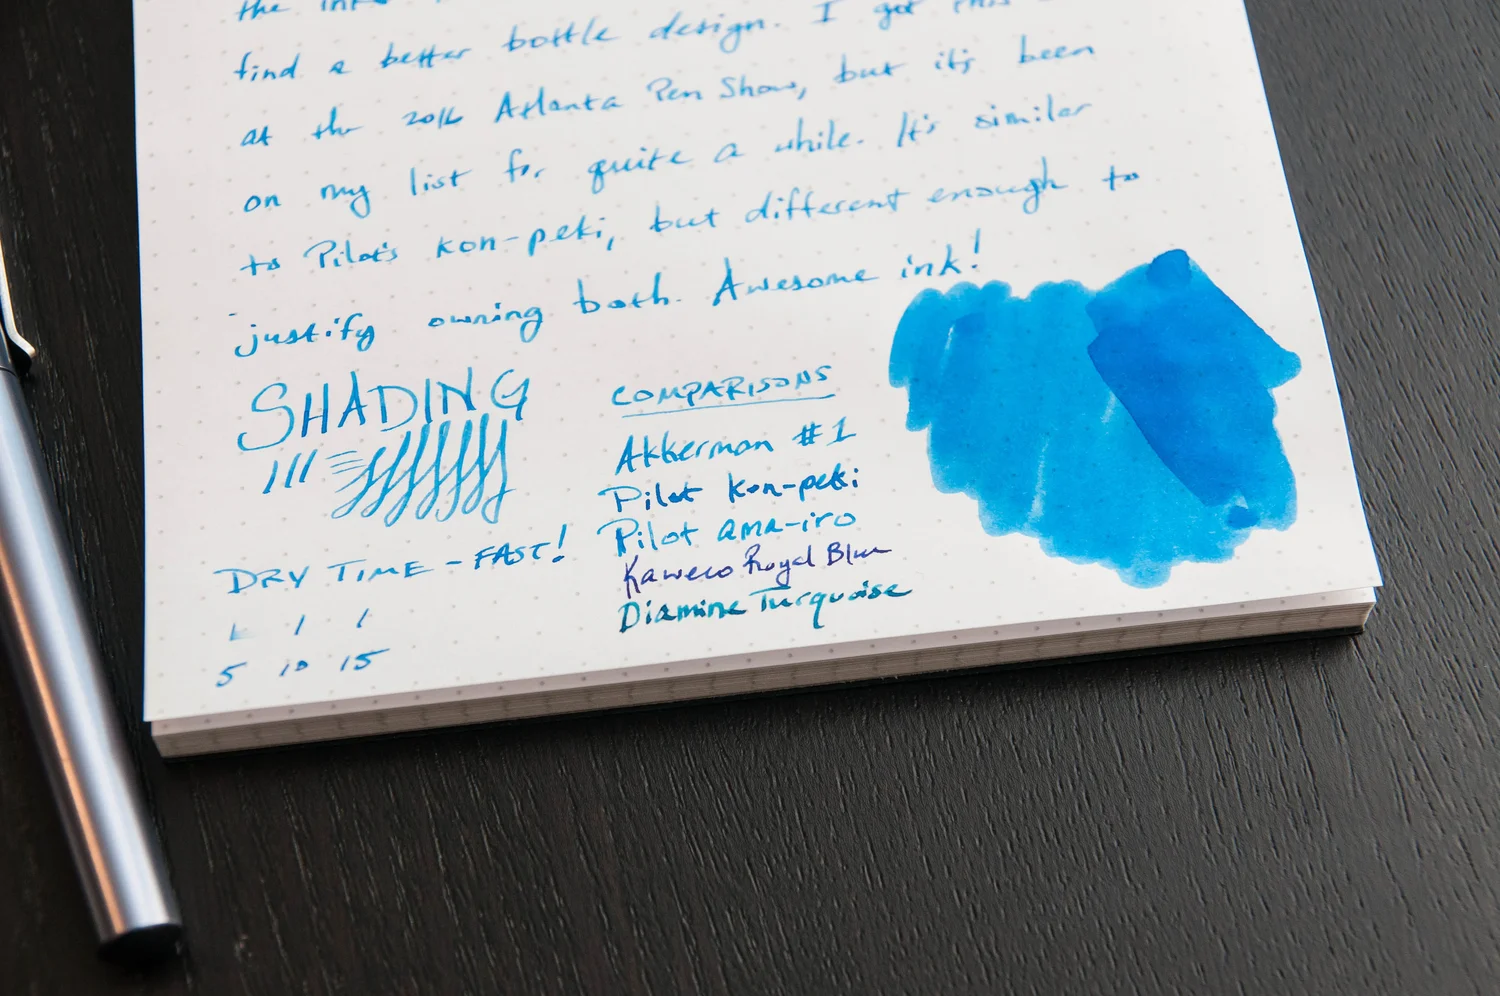 the ink
find a better bottle design. I got this
at the 2016 Atlanta Pen Show, but it's been
on my list for quite a while. It's similar
to Pilot's kon-peki, but different enough to
justify owning both. Awesome ink!
SHADING
COMPARISONS
Akkerman #1
Pilot kon-peki
Pilot ama-iro
Kaweco Royal Blue
Diamine Turquoise
DRY TIME - FAST!
5 10 15